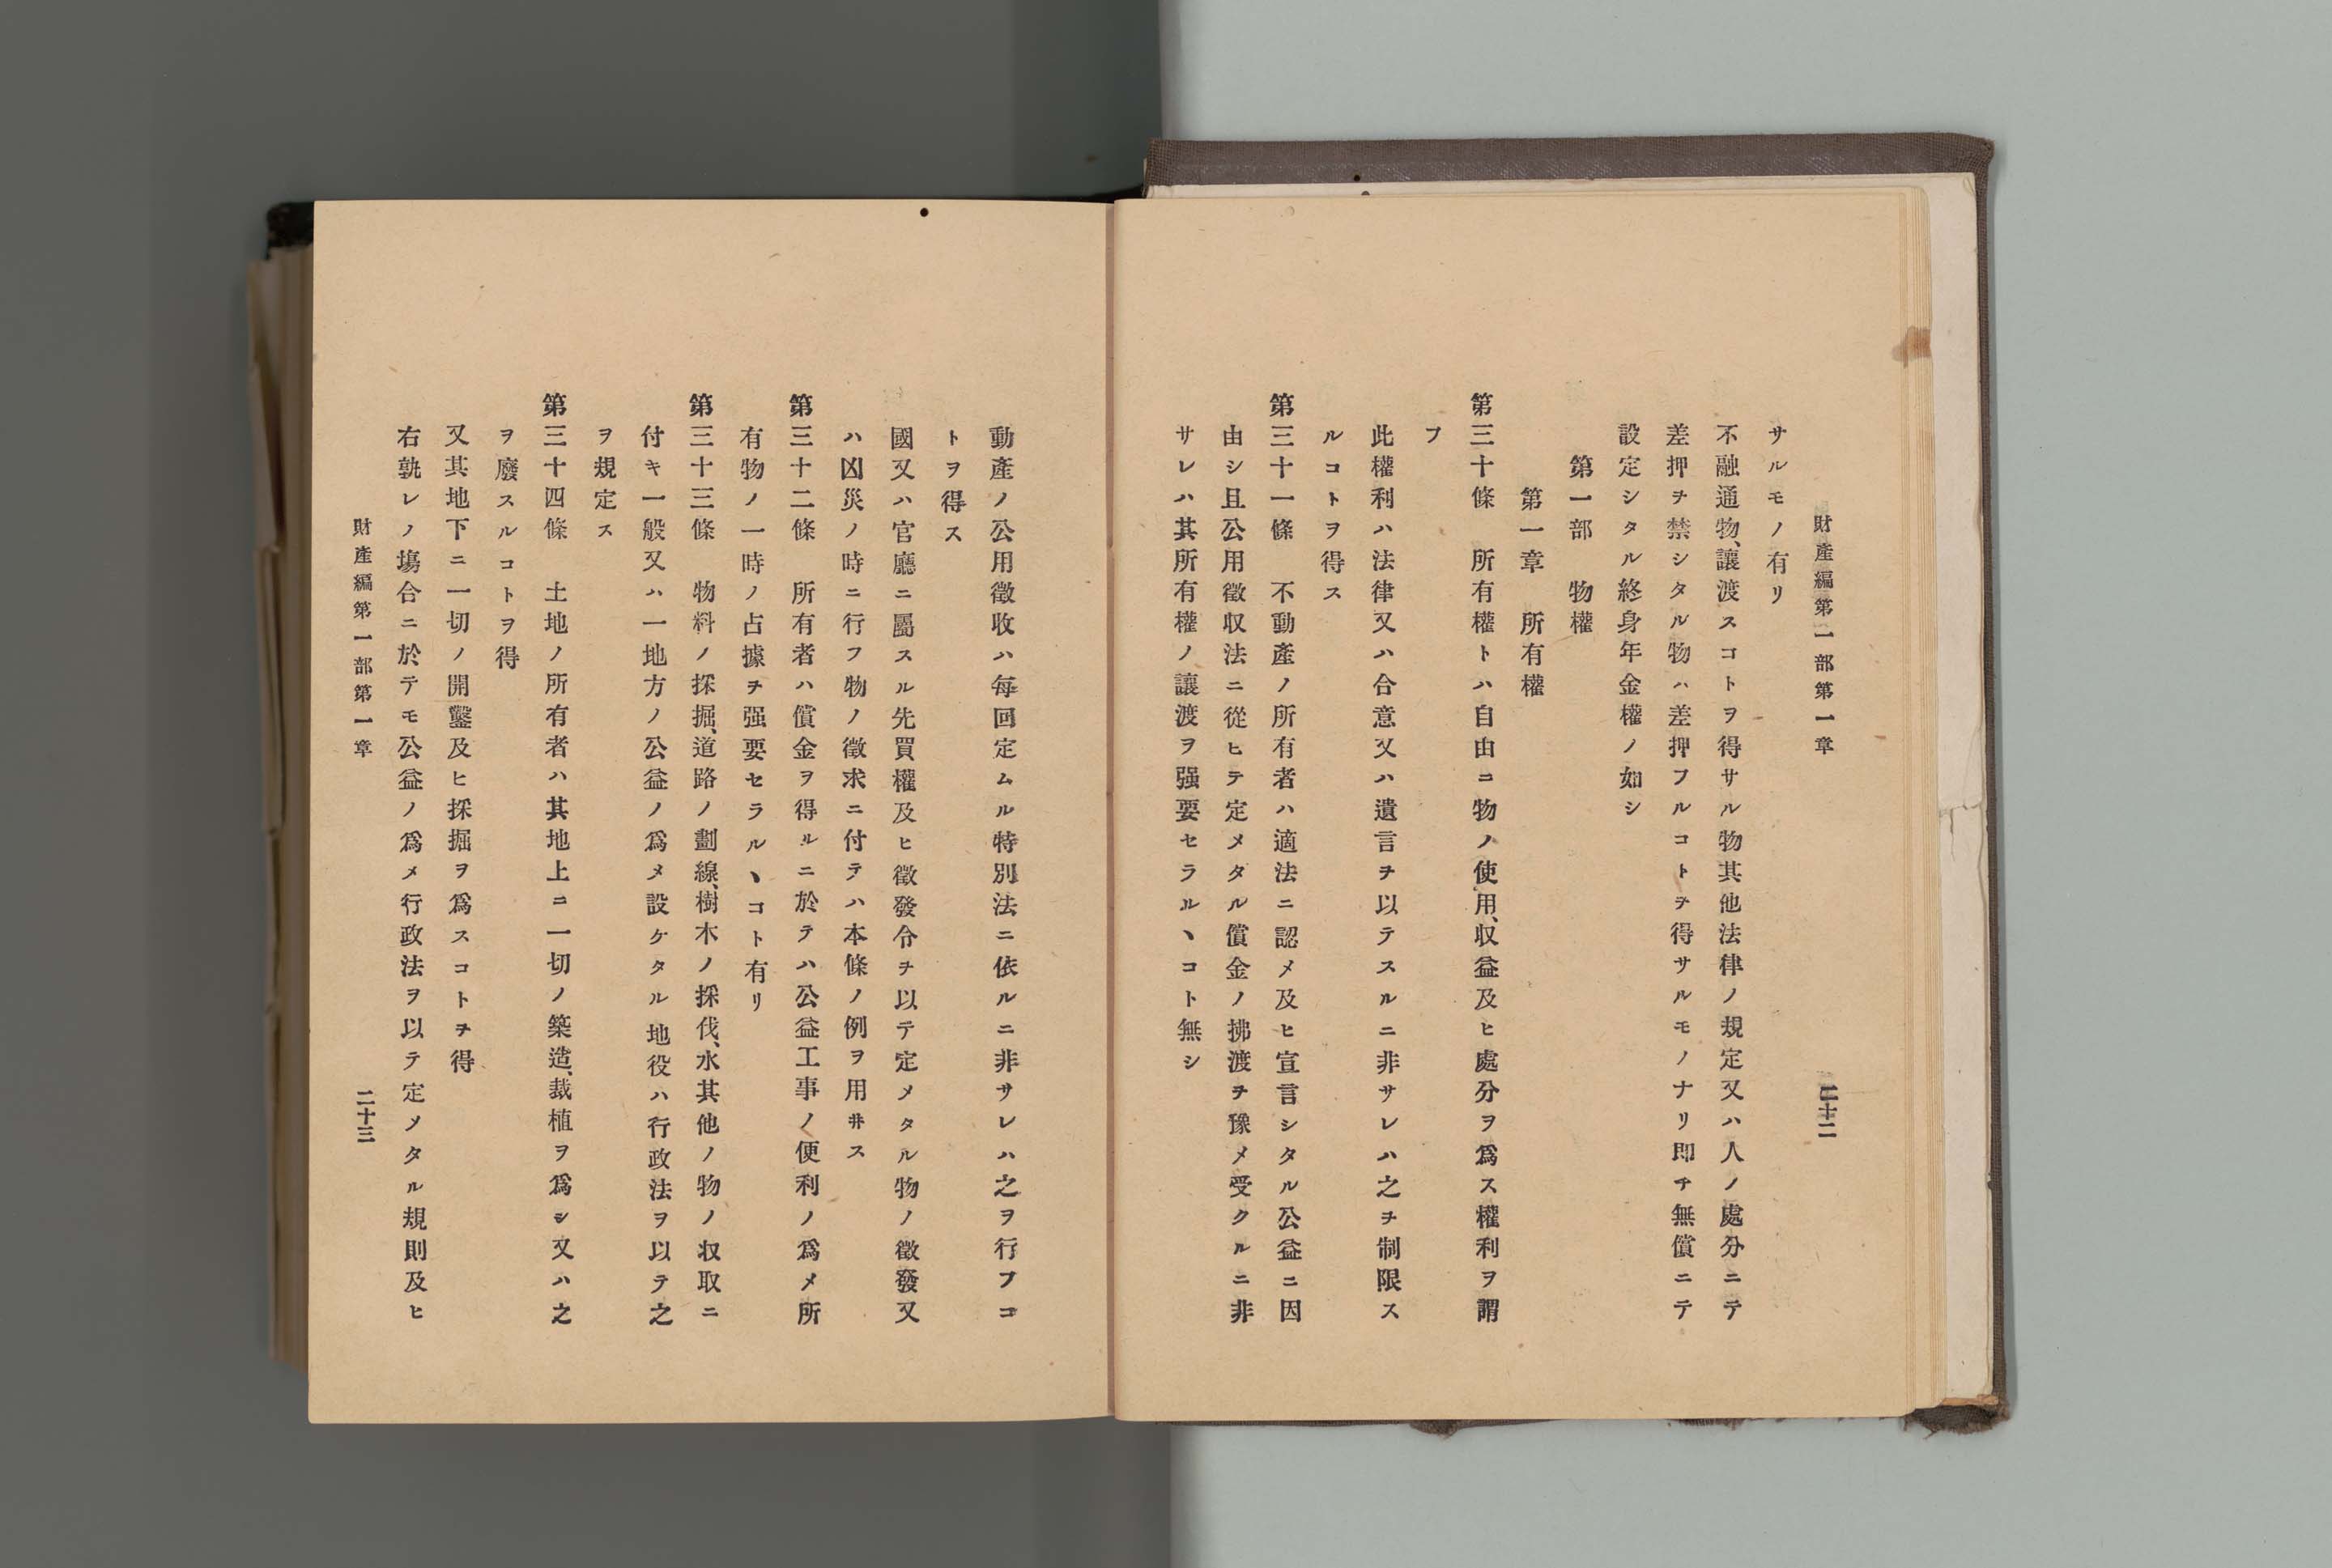 財產編第一部第一章　二十二
サルモノ有リ
不融通物、讓渡スコトヲ得サル物其他法律ノ規定又ハ人ノ處分ニテ
差押ヲ禁シタル物ハ差押フルコトヲ得サルモノナリ卽チ無償ニテ
設定シタル終身年金權ノ如シ
第一部　物權
第一章　所有權
第三十條　所有權トハ自由ニ物ノ使用、収益及ヒ處分ヲ爲ス權利ヲ謂
フ
此權利ハ法律又ハ合意又ハ遺言ヲ以テスルニ非サレハ之ヲ制限ス
ルコトヲ得ス
第三十一條　不動產ノ所有者ハ適法ニ認メ及ヒ宣言シタル公益ニ因
由シ且公用徵収法ニ從ヒテ定メタル償金ノ拂渡ヲ豫メ受クルニ非
サレハ其所有權ノ讓渡ヲ强要セラルヽコト無シ
動產ノ公用徵收ハ每回定ムル特別法ニ依ルニ非サレハ之ヲ行フコ
トヲ得ス
國又ハ官廳ニ屬スル先買權及ヒ徵發令ヲ以テ定メタル物ノ徵發又
ハ凶災ノ時ニ行フ物ノ徵求ニ付テハ本條ノ例ヲ用ヰス
第三十二條　所有者ハ償金ヲ得ルニ於テハ公益工事ノ便利ノ爲メ所
有物ノ一時ノ占據ヲ强要セラルヽコト有リ
第三十三條　物料ノ採掘、道路ノ劃線、樹木ノ採伐、水其他ノ物ノ収取ニ
付キ一般又ハ一地方ノ公益ノ爲メ設ケタル地役ハ行政法ヲ以テ之
ヲ規定ス
第三十四條　土地ノ所有者ハ其地上ニ一切ノ築造、栽植ヲ爲シ又ハ之
ヲ廢スルコトヲ得
又其地下ニ一切ノ開鑿及ヒ採掘ヲ爲スコトヲ得
右孰レノ塲合ニ於テモ公益ノ爲メ行政法ヲ以テ定メタル規則及ヒ
財產編第一部第一章　二十三